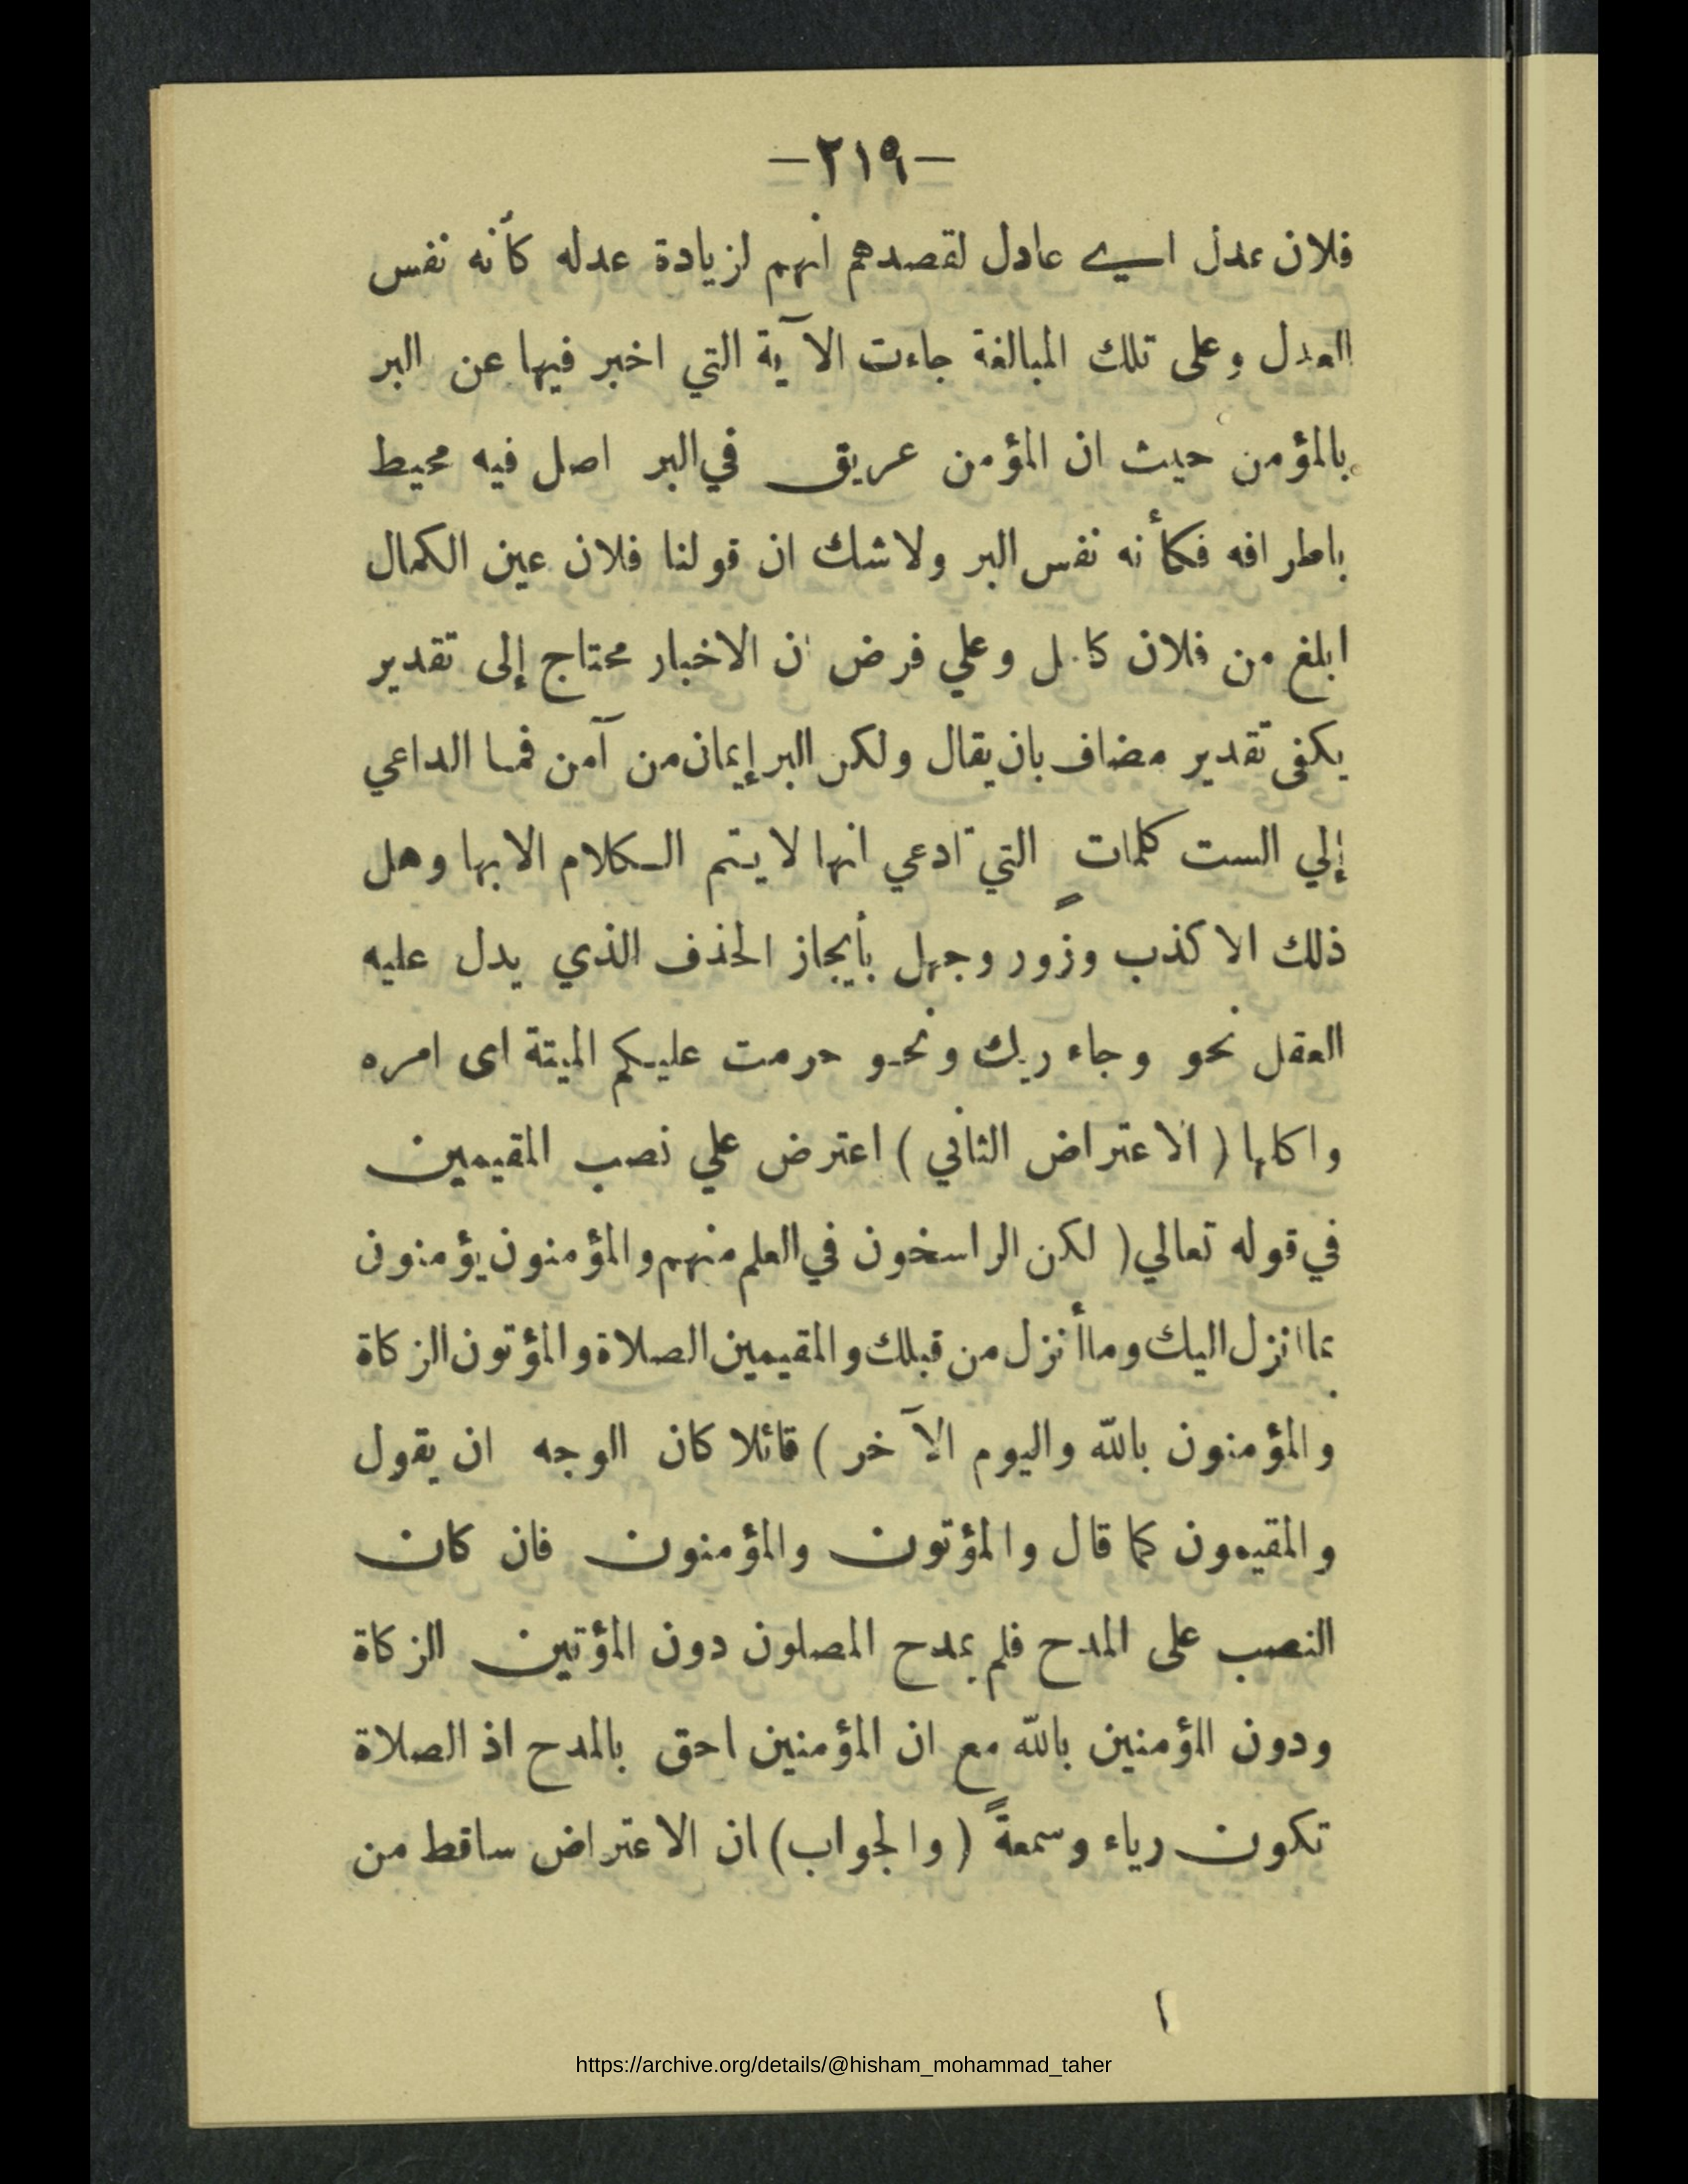 —٢١٩—
فلان عدل اي عادل لقصدهم انهم لزيادة عدله كأنه نفس
العدل وعلى تلك المبالغة جاءت الآية التي اخبر فيها عن البر
بالمؤمن حيث ان المؤمن عريق في البر اصل فيه محيط
باطرافه فكأنه نفس البر ولاشك ان قولنا فلان عين الكمال
ابلغ من فلان كامل وعلي فرض ان الاخبار محتاج إلى تقدير
يكفى تقدير مضاف بان يقال ولكن البر إيمان من آمن فما الداعي
إلي الست كلمات التي تدعي انها لا يتم الكلام الا بها وهل
ذلك الا كذب وزور وجهل بأيجاز الحذف الذي يدل عليه
العقل نحو وجاء ربك ونحو حرمت عليكم الميتة اى امره
واكلها ( الاعتراض الثاني ) اعترض علي نصب المقيمين
في قوله تعالي ( لكن الراسخون في العلم منهم والمؤمنون يؤمنون
بما انزل اليك وما أنزل من قبلك والمقيمين الصلاة والمؤتون الزكاة
والمؤمنون بالله واليوم الآخر ) قائلا كان الوجه ان يقول
والمقيمون كما قال والمؤتون والمؤمنون فان كان
النصب على المدح فلم يمدح المصلون دون المؤتين الزكاة
ودون المؤمنين بالله مع ان المؤمنين احق بالمدح اذ الصلاة
تكون رياء وسمعةً ( والجواب ) ان الاعتراض ساقط من
https://archive.org/details/@hisham_mohammad_taher